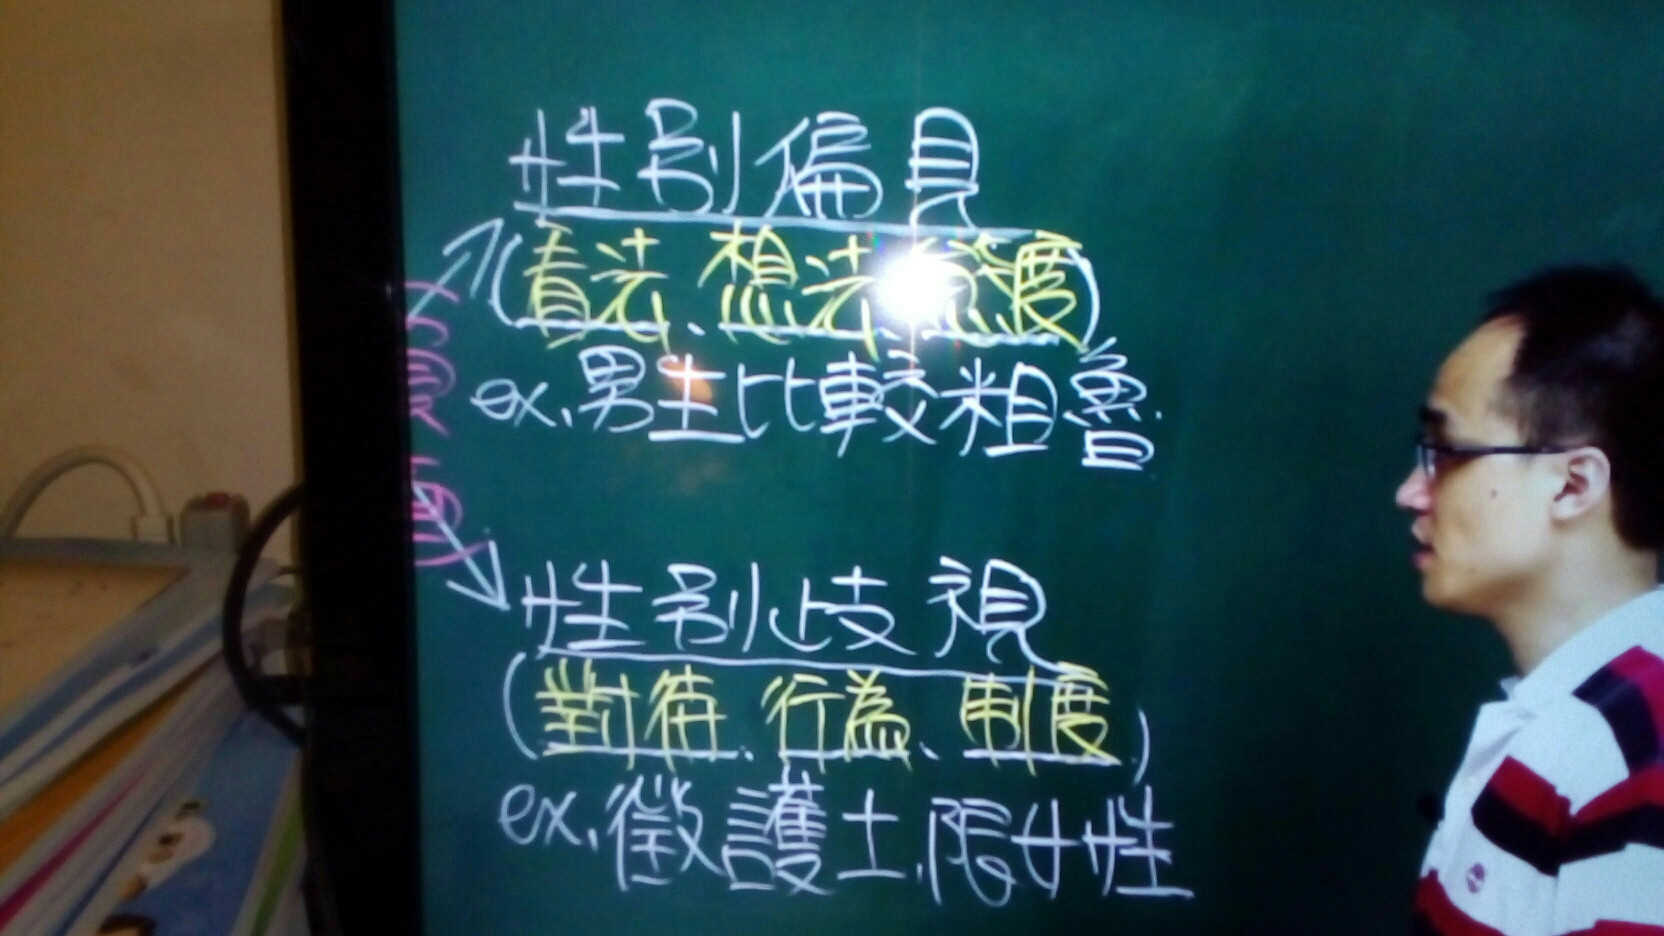 性別偏見
(看法、想法、態度)
ex.男生比較粗魯.
性別歧視
(對待、行為、制度)
ex.徵護士,限女性